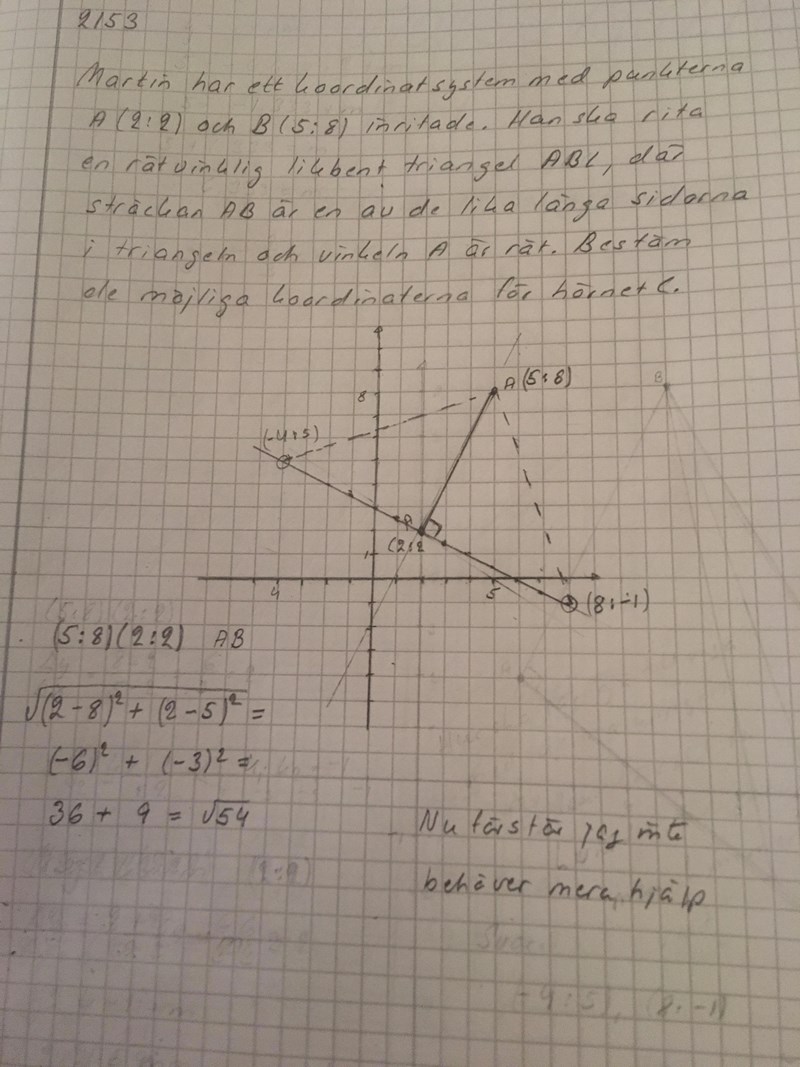 2153
Martin har ett koordinatsystem med punkterna
A (2:2) och B (5:8) inritade. Han ska rita
en rätvinklig likbent triangel ABC, där
sträckan AB är en av de lika långa sidorna
i triangeln och vinkeln A är rät. Bestäm
de möjliga koordinaterna för hörnet C.
A (5:8)
B
8
(-4:5)
(2:2
1
4
5
(8:-1)
(5:8)(2:2) AB
√(2-8)² + (2-5)² =
(-6)² + (-3)² =
36 + 9 = √54
Nu förstår jag inte
behöver mera hjälp
Svar
(-4:5), (8:-1)